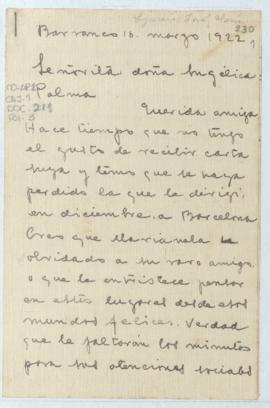 230
Barranco 16. marzo 1922,
Señorita doña Angélica
Palma
Querida amiga
Hace tiempo que no tengo
el gusto de recibir carta
suya y temo que se haya
perdido la que le dirigí
en diciembre, a Barcelona
Creo que Marianela ha
olvidado a su raro amigo
o que le entristece pensar
en estos lugares desde esos
mundos felices. Verdad
que le faltarán los minutos
para sus atenciones sociales